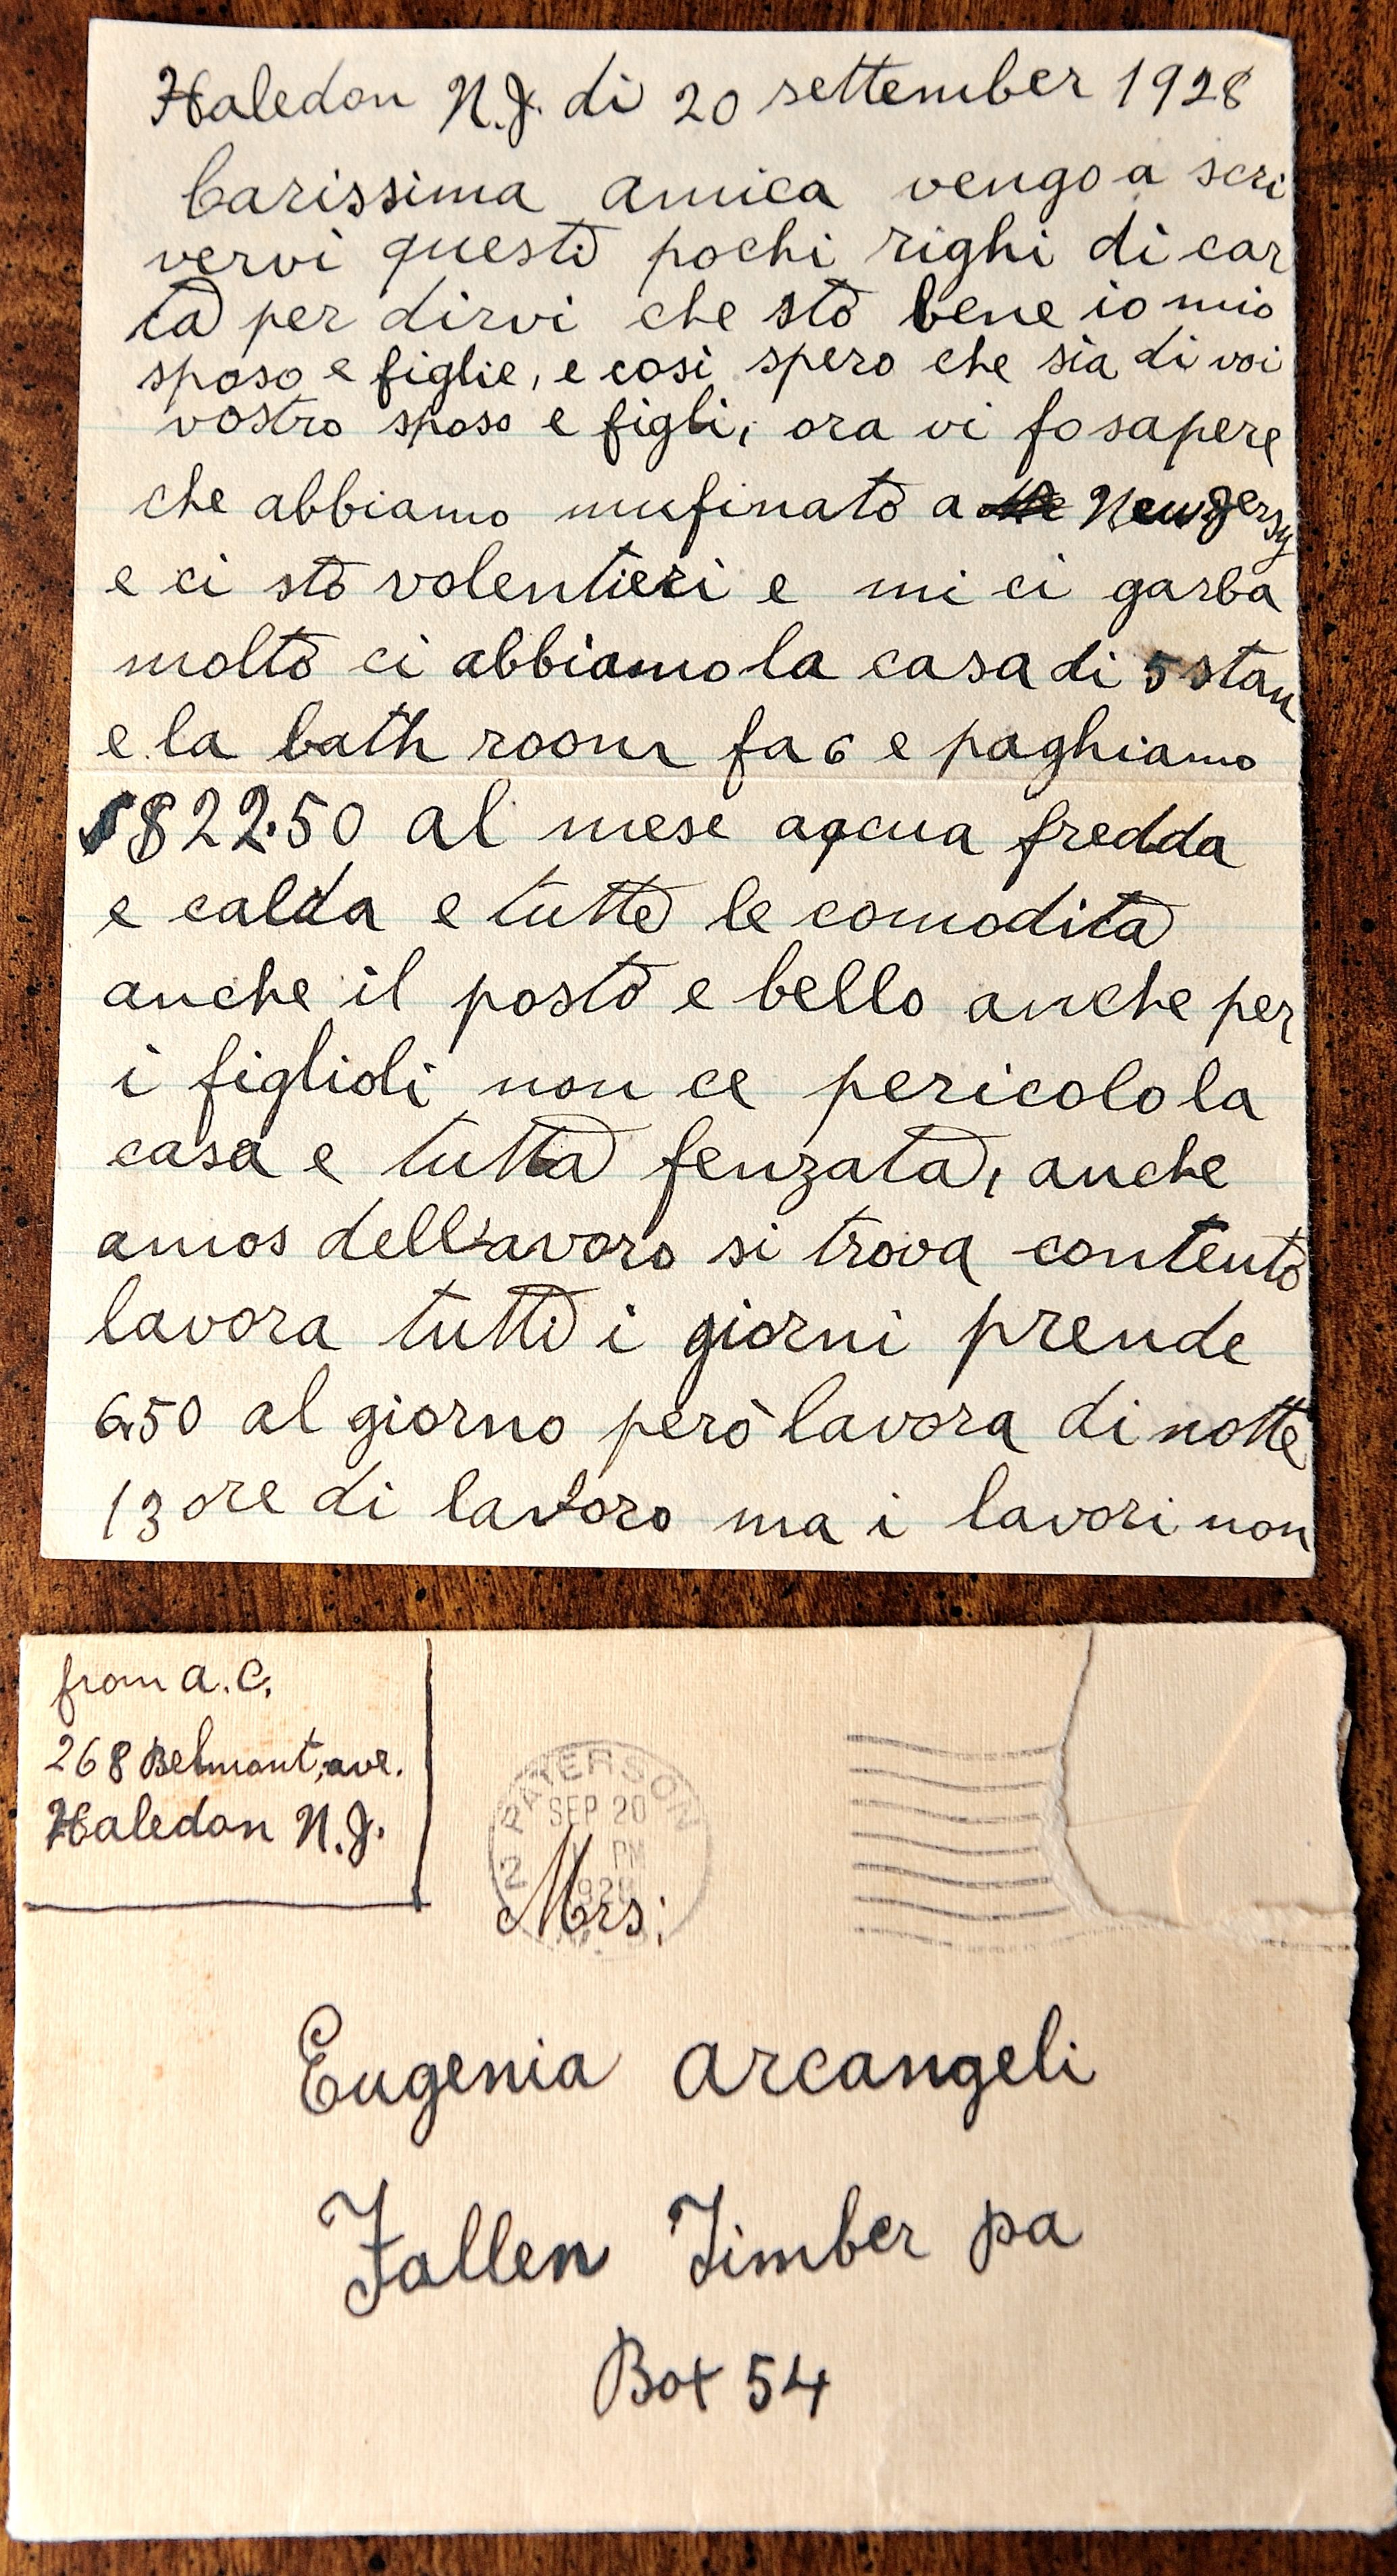 Haledon N.J. di 20 settember 1928
Carissima amica vengo a scri
vervi questi pochi righi di car
ta per dirvi che sto bene io mio
sposo e figlie, e cosi spero che sia di voi
vostro sposo e figli, ora vi fo sapere
che abbiamo mufinato a New Jersy
e ci sto volentieri e mi ci garba
molto ci abbiamo la casa di 5 stan
e la bath room fa 6 e paghiamo
$22.50 al mese aqcua fredda
e calda e tutte le comodita
anche il posto e bello anche per
i figlioli non ce pericolo la
casa e tutta fenzata, anche
amos dell'avoro si trova contento
lavora tutti i giorni prende
6.50 al giorno però lavora di notte
13 ore di lavoro ma i lavori non
from a.C.
268 Belmont, ave.
Haledon N.J.
PATERSON
SEP 20
PM
2
Mrs.
Eugenia Arcangeli
Fallen Timber pa
Box 54